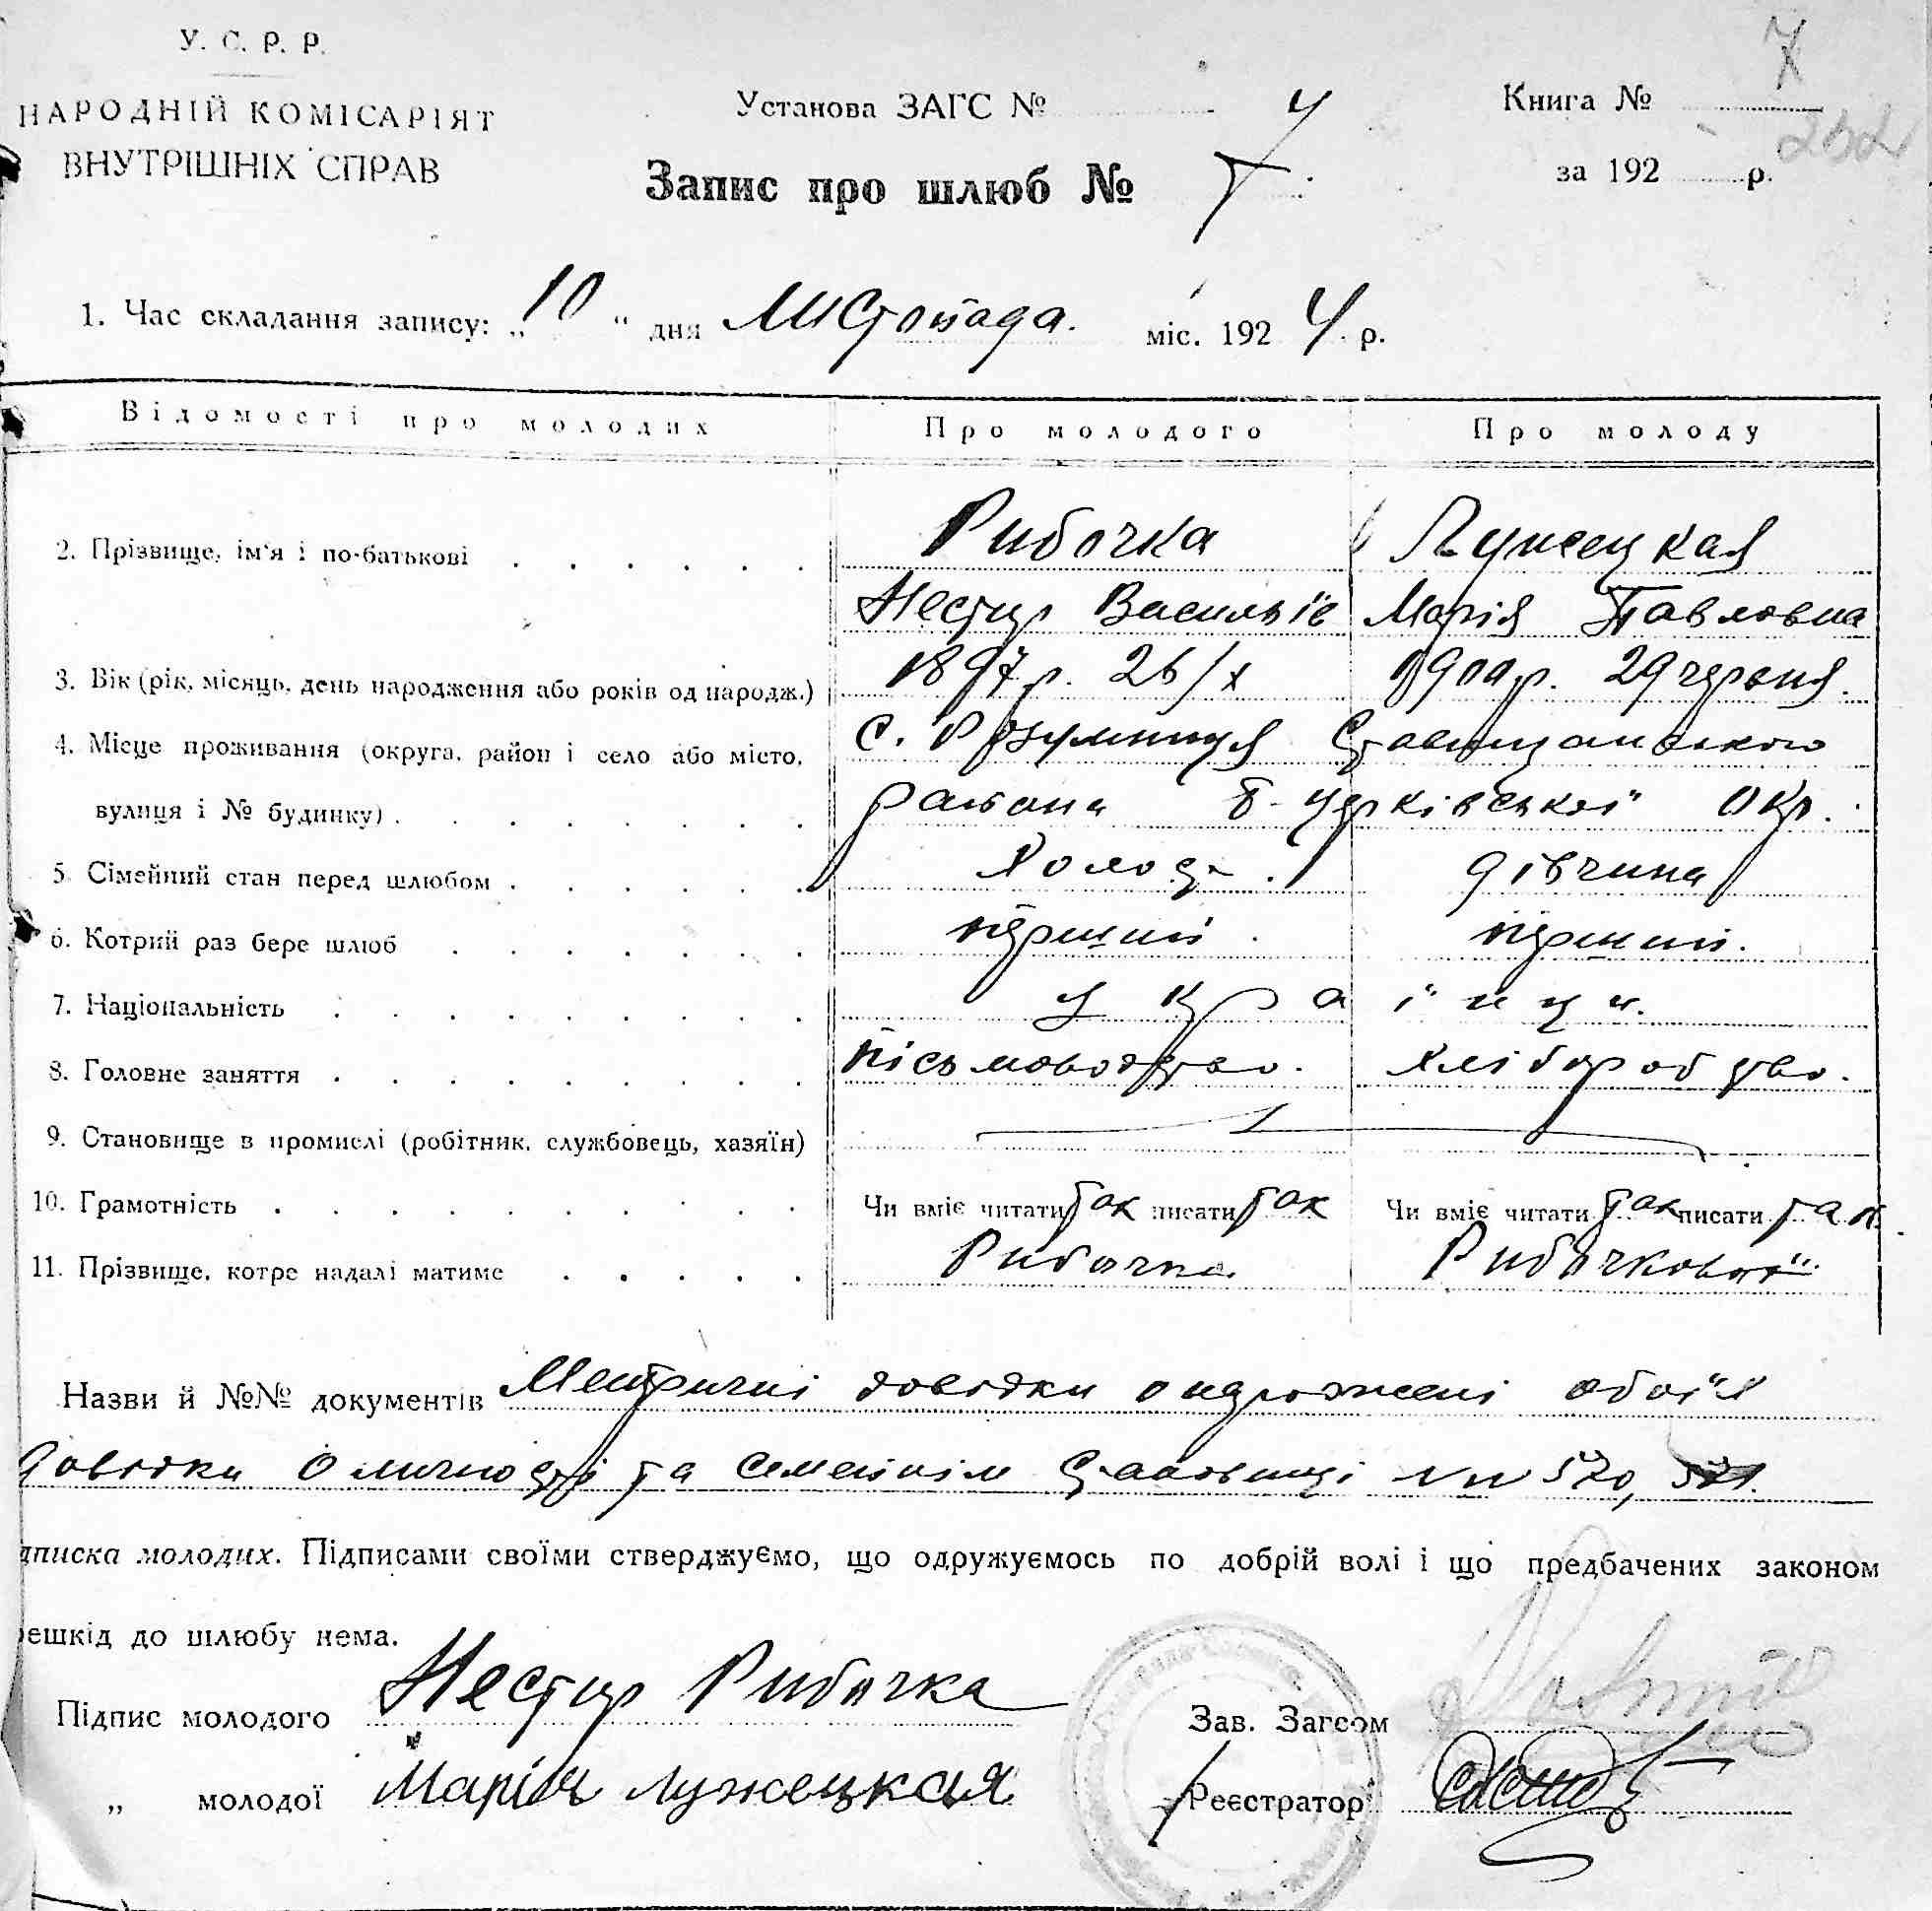 У. С. Р. Р.
НАРОДНІЙ КОМІСАРІЯТ
ВНУТРІШНІХ СПРАВ
Установа ЗАГС №
Запис про шлюб № 7
Книга № 7
252
за 192 р.
1. Час складання запису: „10“ дня Листопада міс. 1924 р.
Відомості про молодих Про молодого Про молоду
2. Прізвище, ім'я і по-батькові Рибочка Лужецкая
Нестур Васильїв Марія Павловна
3. Вік (рік, місяць, день народження або років од народж.) 1897 р. 26/X 1900 р. 29 червня.
4. Місце проживання (округа, район і село або місто, с. Розумниця Ставищанського
вулиця і № будинку) района Б-Церківської Окр.
5. Сімейний стан перед шлюбом Холост. дівчина
6. Котрий раз бере шлюб перший перший.
7. Національність українці.
8. Головне заняття пісьмоводство. хліборобство.
9. Становище в промислі (робітник, службовець, хазяїн)
10. Грамотність Чи вміє читати так писати так Чи вміє читати так писати так
11. Прізвище, котре надалі матиме Рибочка Рибочковой
Назви й №№ документів Метричні довідки о нарожені обоїх
Довідки о личності та семейнім становищі №№ 520, 521.
дписка молодих. Підписами своїми стверджуємо, що одружуємось по добрій волі і що предбачених законом
ешкід до шлюбу нема.
Підпис молодого Нестур Рибочка
Зав. Загсом
„ молодої Марія Лужецкая
Реєстратор